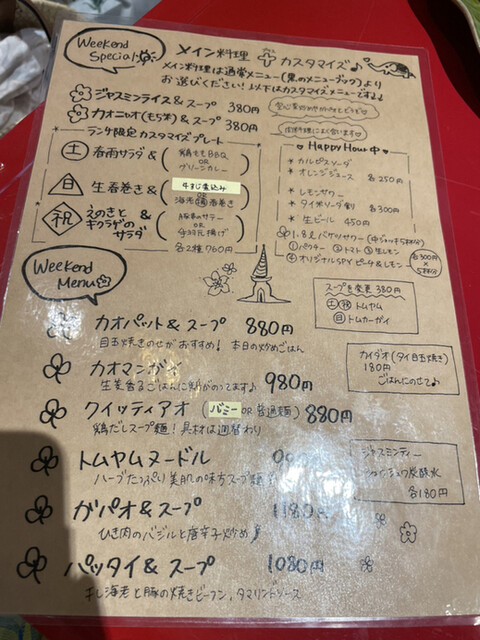 Weekend Special
メイン料理 + カスタマイズ♪
メイン料理は通常メニュー(黒のメニューブック)より
お選びください!以下はカスタマイズメニューです♪♪
ジャスミンライス&スープ 380円
カオニャオ(もち米)&スープ 380円
ランチ限定カスタマイズプレート
土 春雨サラダ & (鶏ももBBQ OR グリーンカレー)
日 生春巻き & (牛すじ煮込み OR 海老春巻き)
祝 えのきとキクラゲのサラダ & (豚串のサテー OR 手羽元揚げ)
各2種 760円
Happy Hour 中
* カルピスソーダ
* オレンジジュース 各250円
* レモンサワー
* タイ焼ソーダ割 各300円
* 生ビール 450円
1.8ℓ バケツサワー (中ジョッキ5杯分)
①パクチー ②トマト ③生レモン
④オリジナルSPYピーチ&レモン
スープを変更 380円
土 祝 トムヤム
日 トムカーガイ
Weekend Menu
カオパット&スープ 880円
目玉焼きのせがおすすめ! 本日の炒めごはん
カオマンガイ 980円
生姜香るごはんに鶏がのってます♪
クイッティアオ (バミー OR 普通麺) 880円
鶏だしスープ麺!具材は週替わり
カイダオ(タイ目玉焼き)
180円
ごはんにのせて♪
トムヤムヌードル
ハーブたっぷり美肌の味方スープ麺
ジャスミンティー
炭酸水
各180円
ガパオ&スープ 1180円
ひき肉のバジルと唐辛子炒め
パッタイ&スープ 1080円
干し海老と豚の焼きビーフン,タマリンドソース